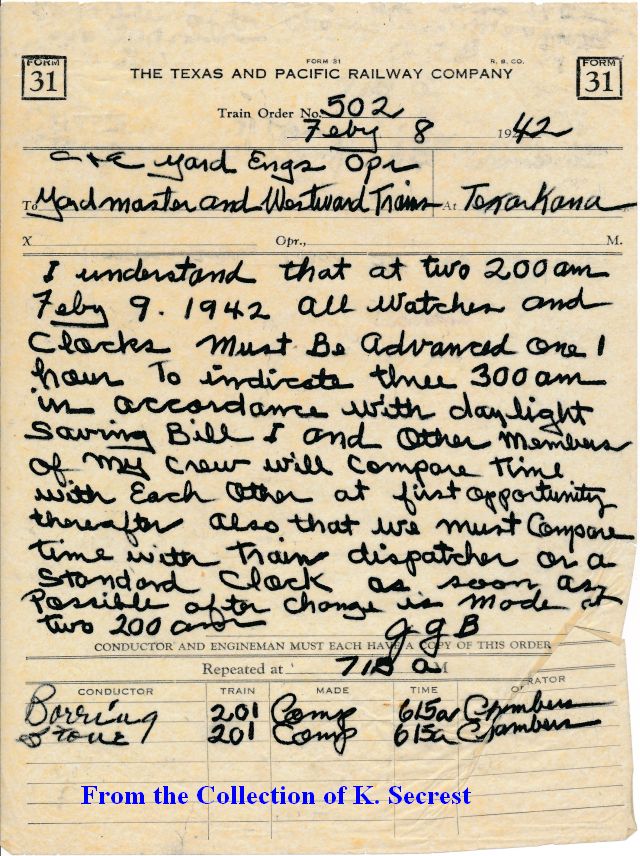 FORM 31
FORM 31
R. B. CO.
FORM 31
THE TEXAS AND PACIFIC RAILWAY COMPANY
Train Order No. 502
Feby 8 1942
C+E Yard Engs Opr
To Yardmaster and Westward Trains At Texarkana
X Opr., M.
I understand that at two 200 am
Feby 9. 1942 All Watches and
Clocks Must Be Advanced one 1
hour To indicate three 300 am
in accordance with daylight
Saving Bill I and Other Members
of My Crew will Compare Time
with Each Other at first opportunity
thereafter Also that we must Compare
time with Train dispatcher or a
Standard Clock as soon as
Possible after change is Made at
two 200 am
J G B
CONDUCTOR AND ENGINEMAN MUST EACH HAVE A COPY OF THIS ORDER
Repeated at 710 a M
CONDUCTOR TRAIN MADE TIME OPERATOR
Borring 201 Comp 615a Chambers
Stone 201 Comp 615a Chambers
From the Collection of K. Secrest